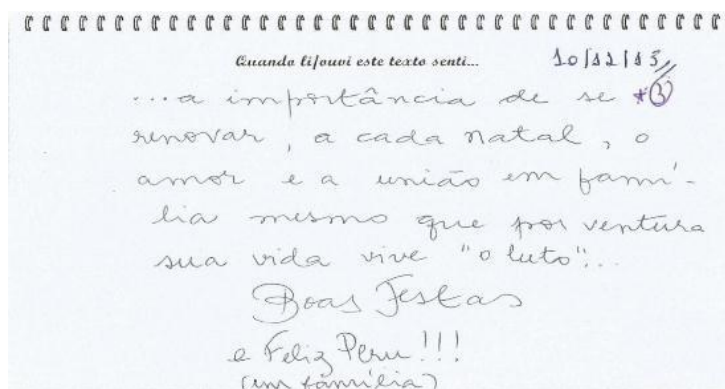 Quando li/ouvi este texto senti... 10/12/13
...a importância de se *3
renovar, a cada natal, o
amor e a união em famí-
lia mesmo que por ventura
sua vida vive "o luto"...
Boas Festas
e Feliz Peru!!!
(em família)